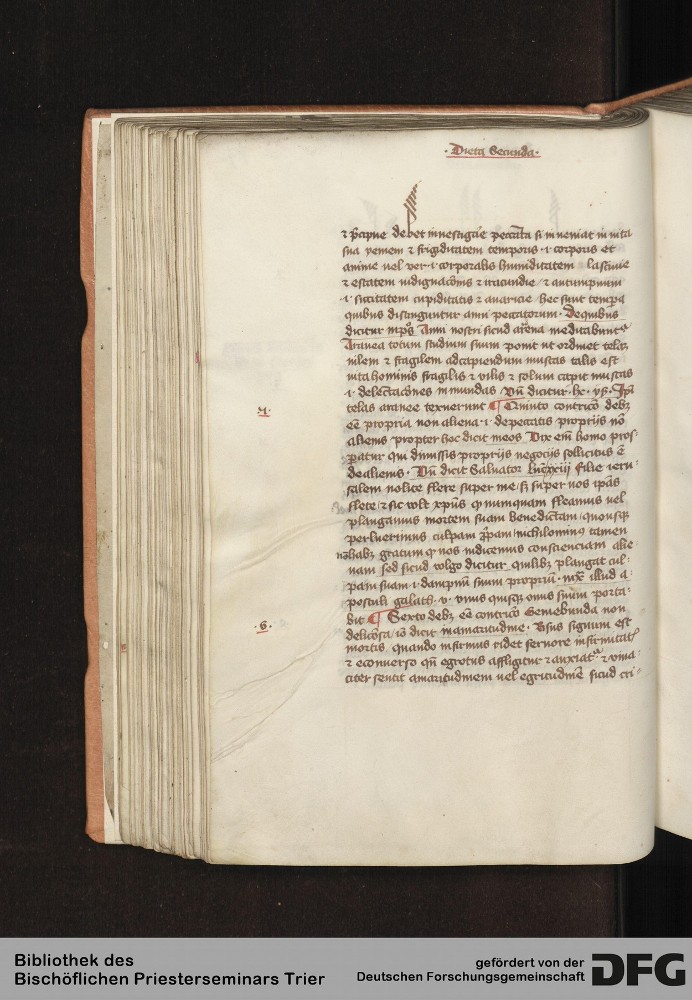 · Dieta Secunda ·
⁊ p̄cipue debet inuestigare peccata si inueniat in uita
sua yemem ⁊ frigiditatem temporis ·i· corporis et
anime uel ver ·i· corporalis humiditatem lasciuie
⁊ estatem indignac̄onis ⁊ iracundie / ⁊ autumpnum
·i· siccitatem cupiditatis ⁊ auaricie / hec sunt tempora
quibus distinguntur anni peccatorum · De quibus
dicitur in ps̄ Anni nostri sicud aranea meditabunt᷑
Aranea totum studium suum ponit ut ordinet telaꝫ
uilem ⁊ fragilem ad capiendum muscas talis est
uita hominis fragilis ⁊ vilis ⁊ solum capit muscas
·i· delectac̄ones inmundas / Vn̄ dicitur
telas aranee texuerunt ¶ Quinto contric̄o debꝫ
·4·
eē propria non aliena ·i· de peccatis proprijs nō
alienis propter hoc dicit meos Vix em̄ homo pros
peratur qui dimissis proprijs negocijs sollicitus ē
de alienis · Vn̄ dicit Saluator filie ieru
salem nolite flere super me / sꝫ super uos ip̄as
flete / ⁊ sic uolt xp̄us ꝙ numquam fleamus uel
plangamus mortem suam benedictam / quousqꝫ
perluerimus culpam p̄pam / nichilominus tamen
nō habꝫ gratum ꝙ nos iudicemus conscienciam alie
nam sed sicud volgo dicitur quilibꝫ plangat cul
pam suam ·i· dampnū suum propriū · illud a
postuli galath · v · vnus quisqꝫ onus suum porta
bit ¶ Sexto debꝫ eē contric̄o Gemebunda non
·6·
deliciosa / iō dicit in amaritudine · Vsus signum est
mortis quando infirmus ridet feruore infirmitatꝭ
⁊ econuerso qn̄ egrotus affligitur ⁊ anxiat᷑ ⁊ viua
citer sentit amaritudinem uel egritudinē sicud cri
Bibliothek des
Bischöflichen Priesterseminars Trier
gefördert von der
Deutschen Forschungsgemeinschaft
DFG